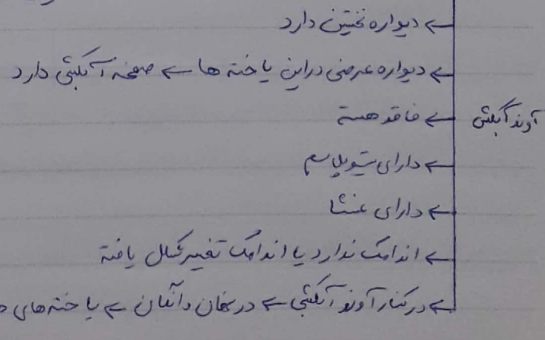 ← دیواره نخستین دارد
← دیواره عرضی در این یاخته ها ← صفحه آبکشی دارد
آوند آبکش ← فاقد هسته
← دارای سیتوپلاسم
← دارای غشا
← اندامک ندارد یا اندامک تغییر شکل یافته
← در کنار آوند آبکشی ← در نهان دانگان ← یاخته های